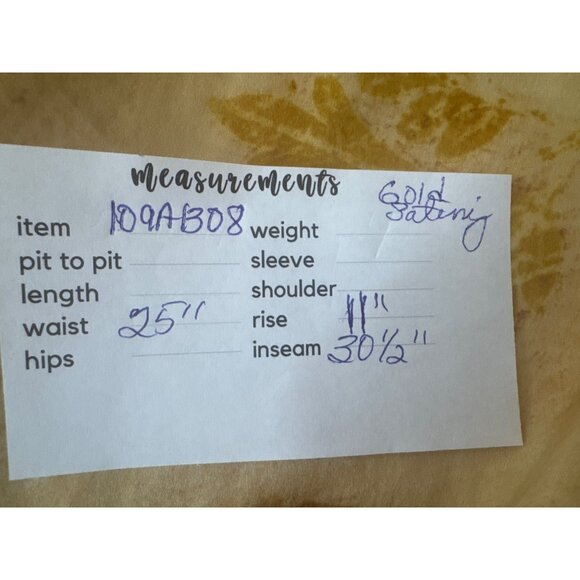 measurements
Gold
item 109AB08 weight
pit to pit sleeve
length shoulder
waist 25" rise 11"
hips inseam 30 1/2"